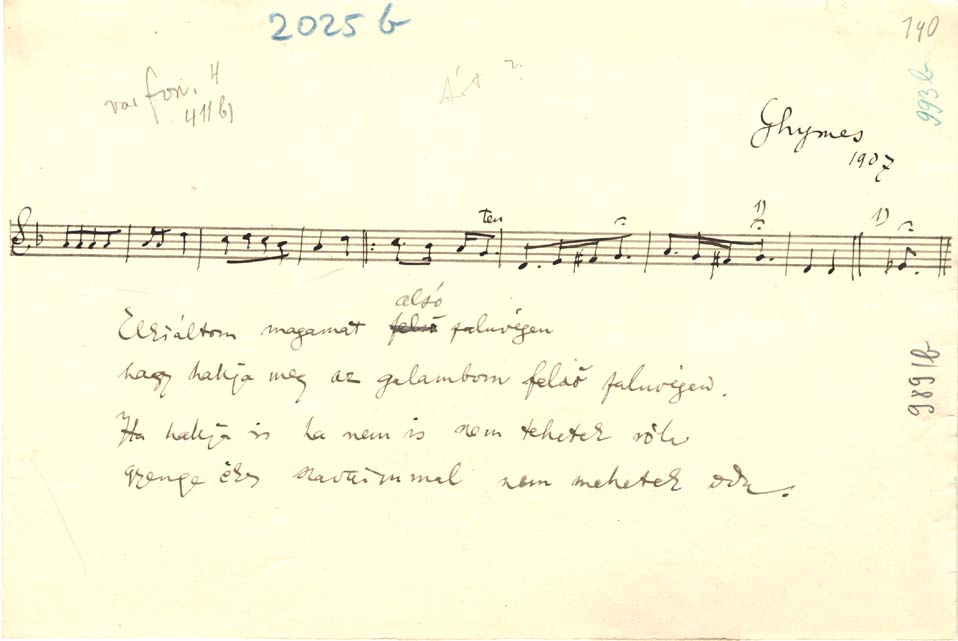 2025 b
140
993 b
var fon. 4
411/b)
Ghymes
1907
ten
1)
1)
alsó
Elkiáltom magamat felső faluvégen
hagy hallja meg az galambom felső faluvégen.
Ha hallja is ha nem is nem tehetek róla
gyenge édes szavaimmal nem mehetek oda.
989/b